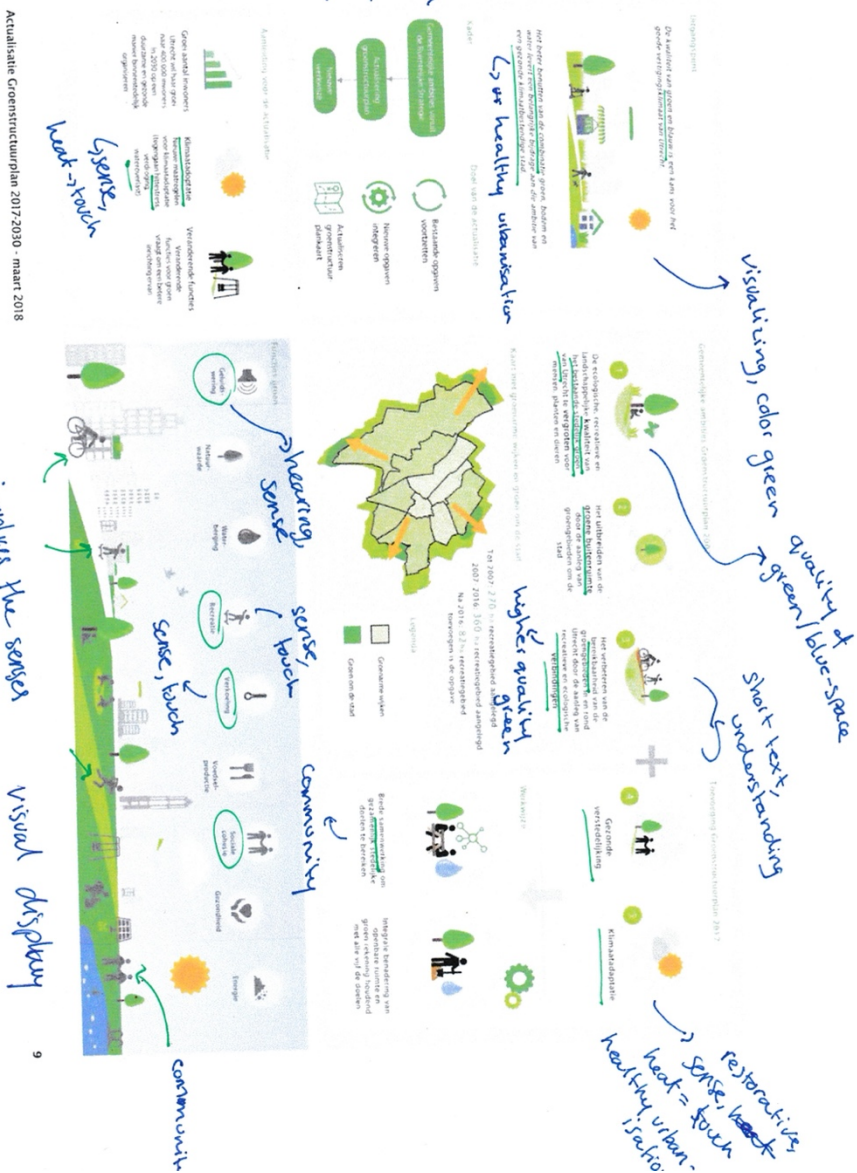 Uitgangspunt
De kwaliteit van groen en blauw is een kans voor het
goede vestigingsklimaat van Utrecht
Het beter benutten van de combinatie groen, bodem en
water levert een belangrijke bijdrage aan die ambitie van
een gezonde klimaatbestendige stad
visualizing, color green
↳ or healthy urbanisation
Kader
Gemeentelijke ambities vanuit
de Ruimtelijke Strategie
Actualisering
groenstructuurplan
Nieuwe
werkwijze
Doel van de actualisatie
Bestaande opgaven
voortzetten
Nieuwe opgaven
integreren
Actualiseren
groenstructuur
plankaart
Aanleiding voor de actualisatie
Groei aantal inwoners
Utrecht wil haar groei
naar 400.000 inwoners
in 2030 op een
duurzame en gezonde
manier binnenstedelijk
organiseren
Klimaatadaptatie
Nieuwe maatregelen
voor klimaatadaptatie
(tegengaan hittestress,
verdroging,
wateroverlast)
↳ sense,
heat → touch
Veranderende functies
Veranderende
functies voor groen
vraagt om een betere
inrichting ervan
Gemeentelijke ambities Groenstructuurplan
1
De ecologische, recreatieve en
landschappelijke kwaliteit van
het bestaande stedelijk groen
van Utrecht te vergroten voor
mensen, planten en dieren
2
Het uitbreiden van de
groene buitenruimte
door de aanleg van
groengebieden om de
stad
3
Het verbeteren van de
bereikbaarheid van de
groengebieden in en rond
Utrecht door de aanleg van
recreatieve en ecologische
verbindingen
quality of
green/blue-space
short text,
understanding
higher quality
green
Toevoeging Groenstructuurplan 2017
4
Gezonde
verstedelijking
5
Klimaatadaptatie
restorative,
sense,
heat = touch
healthy urban-
Kaart met groenarme wijken en groen om de stad
Tot 2007: 270 ha recreatiegebied aangelegd
2007-2016: 360 ha recreatiegebied aangelegd
Na 2016: 82 ha recreatiegebied
toevoegen is de opgave
Legenda
Groenarme wijken
Groen om de stad
Werkwijze
Brede samenwerking om
gezamenlijk stedelijke
doelen te bereiken
Integrale benadering van
openbare ruimte en
groen rekening houdend
met alle vijf de doelen
community
Functies groen
Geluids-
wering
Natuur-
waarde
Water-
berging
Recreatie
Verkoeling
Voedsel-
productie
Sociale
cohesie
Gezondheid
Energie
hearing
sense
sense,
touch
sense, touch
the senses
visual display
Actualisatie Groenstructuurplan 2017-2030 - maart 2018
9